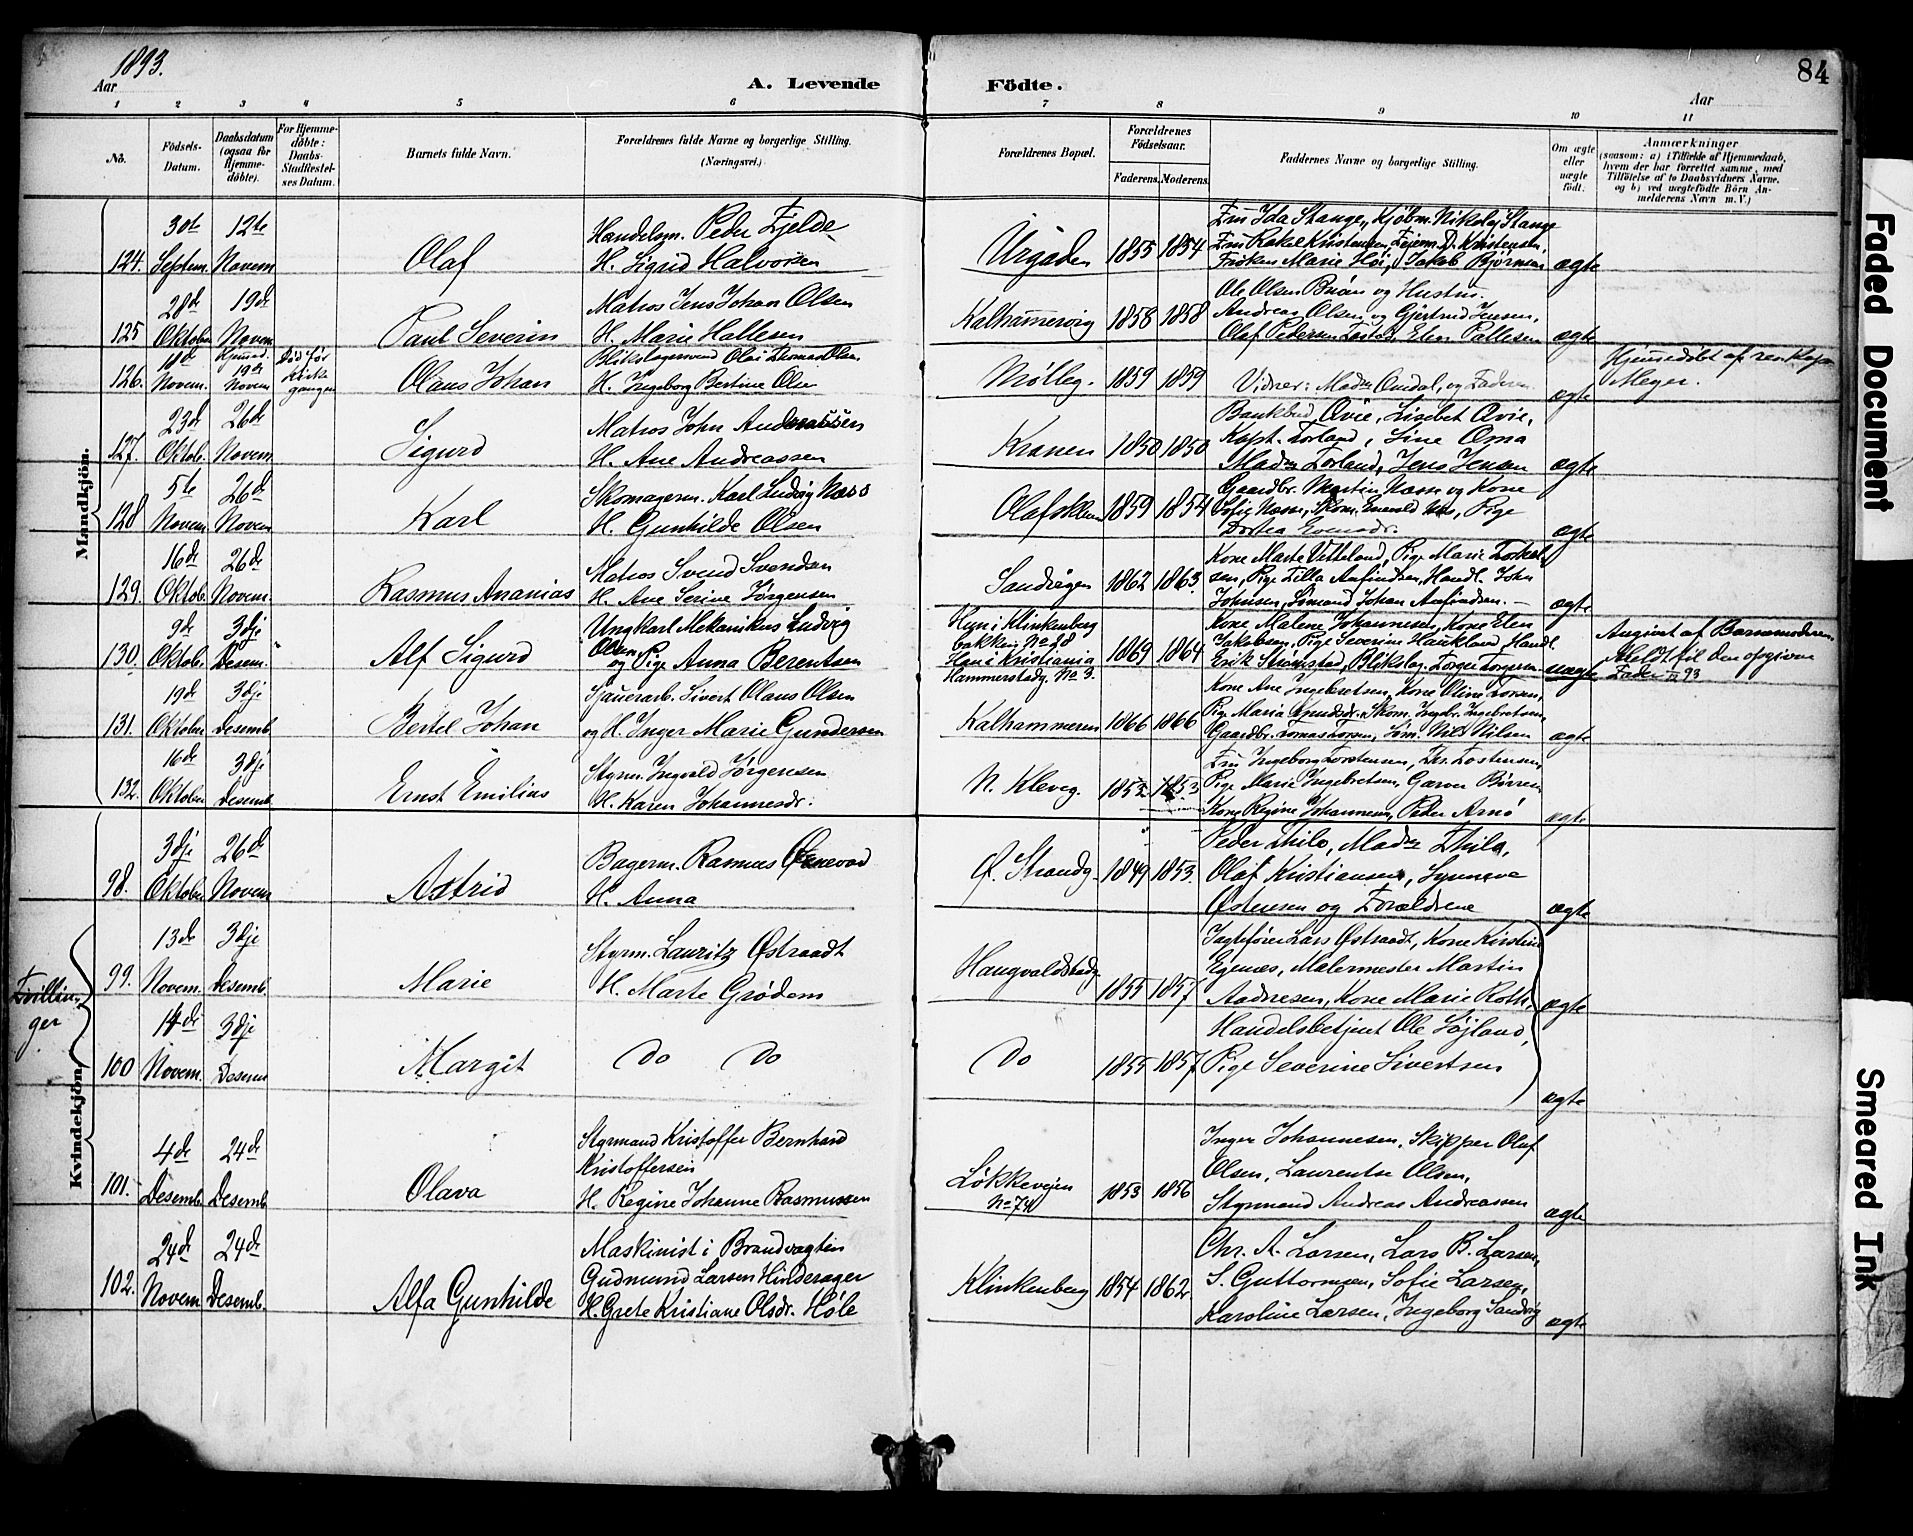 1893.
84
Aar
A. Levende
Födte.
Aar
1 2 3 4 5 6 7 8 9 10 11
No.
Födsels-Datum.
Daabsdatum (ogsaa for Hjemme-döbte).
For Hjemme-döbte: Daabs-Stadfæstel-ses Datum.
Barnets fulde Navn.
Forældrenes fulde Navne og borgerlige Stilling. (Næringsvei.)
Forældrenes Bopæl.
Forældrenes Födselsaar.
Faderens. Moderens.
Faddernes Navne og borgerlige Stilling.
Om ægte eller uægte født.
Anmærkninger
(saasom: a) i Tilfælde af Hjemmedaab, hvem der har forrettet samme, med Tilföielse af to Daabsvidners Navne, og b) ved uægtefödte Börn An-melderens Navn m. V.)
Mandkjöm.
124. 30te Septem. 12te Novem Olaf
Handelsm. Peder Fjelde
H. Sigrid Halvorsen
Urgaden 1855 1854
Fru Ida Stange, Kjøbm. Nikolaj Stange
Fru Rakel Kristensen, D. Kristensen,
Frøken Marie Høi, Jakob Bjørnsen
ægte
125 28de Oktober 19de Novem Paul Severin
Matros Jens Johan Olsen
H. Marie Hallesen
Kalhammervig 1858 1858
Ole Olsen og Hustru.
Andreas Olsen og Gjertrud Jensen,
Olaf Pedersen Elen Pallesen
ægte
126. 18de Novem. Hjemmed. 19de Novem Død før Kirkegangen Olaus Johan
Blikslagersvend Olai Thomas Olsen
H. Ingeborg Bertine Olsen
Mølleg. 1859 1859
Vidner: Madm og Faderen
ægte
Hjemmedøbt af res. Kap. Meyer.
127. 23de Oktob. 26de Novem. Sigurd
Matros John Andreassen
H. Ane Andreassen
Kranen 1850 1850
Bankbud Øvie, Lisebet Øvie,
Kapt. Torland, Sine Oma
Madm Torland, Jens Jensen
ægte
128 5te Novem. 26de Novem Karl
Skomagerm. Karl Ludvig Næss
H. Gunhilde Olsen
Olafskleven 1859 1854
Gaardbr. Martin Næsse og Kone
Sofie Næsse, Skom. Enevald Næss, Pige
ægte
129. 16de Oktob. 26de Novem. Rasmus Ananias
Matros Svend Svendsen
H. Ane Serine Jørgensen
Sandvigen 1862 1863.
Kone Marte Vetteland, Pige Marie Torkel-
sen, Pige Tilla Arfindsen, Handl. John
Johnsen, Sømand Johan Arfindsen.
ægte
130. 9de Oktob. 3dje Desem. Alf Sigurd
Ungkarl Mekanikus Ludvig
Olsen
og Pige Anna Berentsen
Hun i Klinkenberg
bakken No 28
Han i Kristiania
Hammerstadg. No 3.
1869 1864
Kone Malene Johannesen, Kone Elen
Jakobsen, Pige Severine Haukland, Handl.
Erik Strømstad, Blikslag. Torger Torgersen
uægte
Angivet af Barnemoderen.
Meldt til den opgivne
Fader 93
131. 19de Oktober 3dje Desemb Bertel Johan
Sjauerarb. Sivert Olaus Olsen
og H. Inger Marie Gundersen
Kalhammeren 1866 1866
Kone Ane Ingebretsen, Kone Oline Torsen,
Pige Maria Knudsdr. Skom. Ingebr. Ingebretsen,
Gaardbr. Tomas Torsen, Søm. Nils Nilsen
ægte
132. 16de Oktober 3dje Desemb. Ernst Emilius
Styrm. Ingvald Jørgensen
H. Karen Johannesdr.
N. Kleveg. 1852 1853
Fru Ingeborg Torstensen, Thr. Tostensen,
Pige Marie Ingebretsen, Garver Børresen
Kone Regine Johannesen, Peder Arnø
ægte
Kvindekjön
98. 3dje Oktober 26de Novem Astrid
Bagerm. Rasmus Ørnevad
H. Anna
Ø. Strandg. 1849 1853.
Peder Thilo, Madm Thilo,
Olaf Kristiansen, Synneva
Østensen og Forældrene
ægte
Tvillinger
99. 13de Novem. 3dje Desemb. Marie
Styrm. Lauritz Østraadt
H. Marte Grødem
Haugvaldstadg. 1855 1857
Jagtefører Lars Østraadt, Kone Kirstine
Egenæs, Malermester Martin
Aadnesen, Kone Marie Roth,
ægte
100 14de Novem. 3dje Desemb Margit
Do Do
Do 1855 1857
Handelsbetjent Ole Søjland,
Pige Severine Sivertsen
ægte
101. 4de Desemb. 24de Desemb. Olava
Styrmand Kristoffer Bernhard
Kristoffersen
H. Regine Johanne Rasmussen
Løkkevejen
No 74
1853 1856
Inger Johannesen, Skipper Olaf
Olsen, Laurentse Olsen,
Styrmand Andreas Andreassen
ægte
102. 24de Novem 24de Desemb. Alfa Gunhilde
Maskinist i Brandvagten
Gudmund Larsen Hinderager
H. Grete Kristiane Olsdr. Høle
Klinkenberg 1854 1862.
Chr. A. Larsen, Lars B. Larsen,
S. Guttormsen, Sofie Larsen,
Karoline Larsen, Ingeborg Sandvig
ægte
Faded Document
Smeared Ink